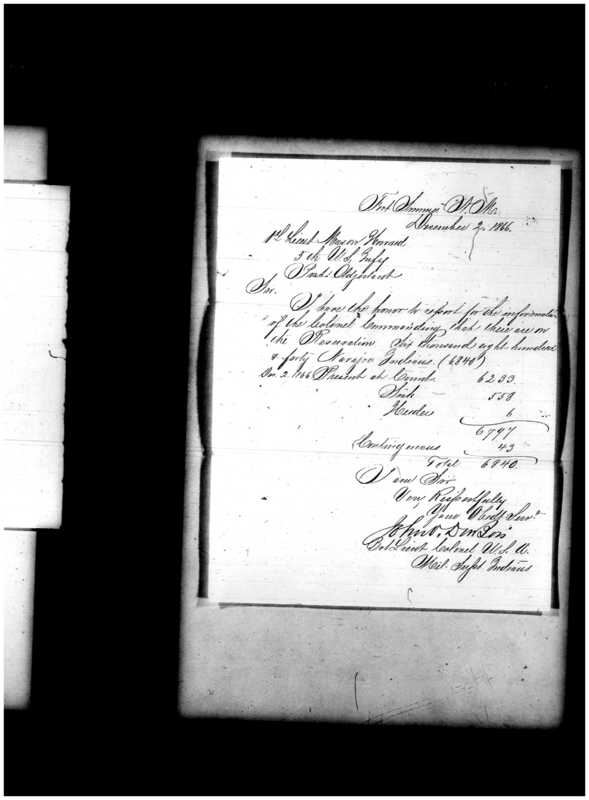 Fort Sumner N. M.
December 2, 1866.
1st Lieut Mason Howard
5th U. S. Infy
Post Adjutant
Sir.
I have the honor to report for the information
of the Colonel Commanding that their are on
the Reservation Six thousand eight hundred
& forty Navajoe Indians. (6840)
Dec. 2. 1866 Present at Count 6233
Sick 558
Herders 6
6797
43
Total 6840.
I am Sir
Very Respectfully
Your Obdt Servt
Bvt Lieut Colonel U. S. A.
Mil. Supt Indians